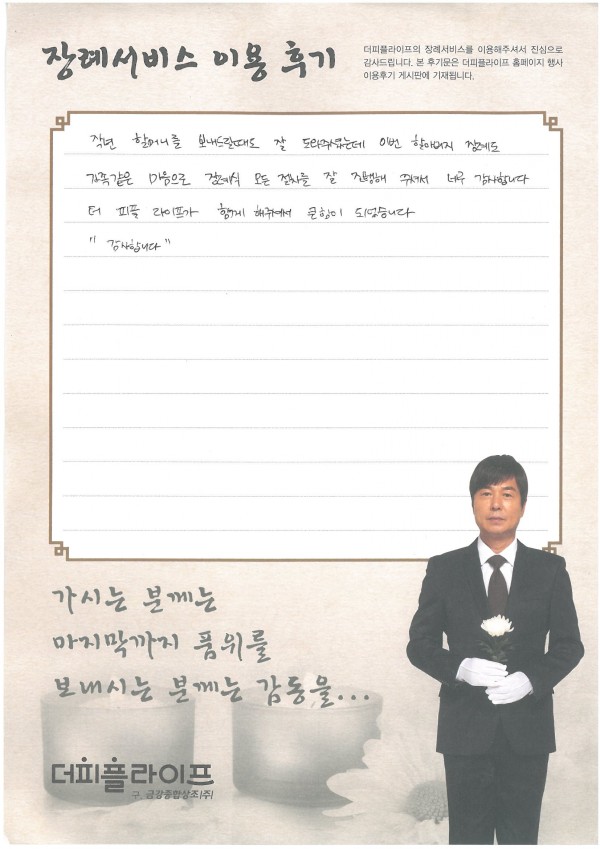 장례서비스 이용 후기
더피플라이프의 장례서비스를 이용해주셔서 진심으로
감사드립니다. 본 후기문은 더피플라이프 홈페이지 행사
이용후기 게시판에 기재됩니다.
작년 할머니를 보내드릴때도 잘 도와주셨는데 이번 할아버지 장례도
가족같은 마음으로 장례식 모든 절차를 잘 진행해 주셔서 너무 감사합니다
더 피플 라이프가 함께 해줘서 큰힘이 되었습니다
" 감사합니다 "
가시는 분께는
마지막까지 품위를
보내시는 분께는 감동을...
더피플라이프
구. 금강종합상조(주)